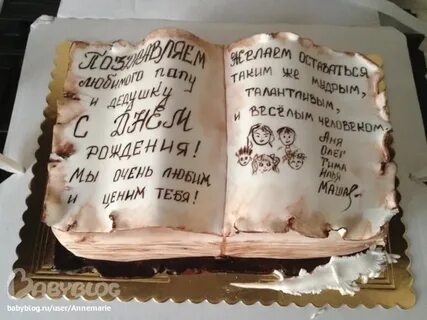 Поздравляем
любимого папу
и дедушку
с Днём
рождения!
Мы очень любим
и ценим тебя!
Желаем оставаться
таким же мудрым,
талантливым,
и весёлым человеком.
Аня
Олег
Тима
Илья
Маша
BABYBLOG
babyblog.ru/user/Annemarie